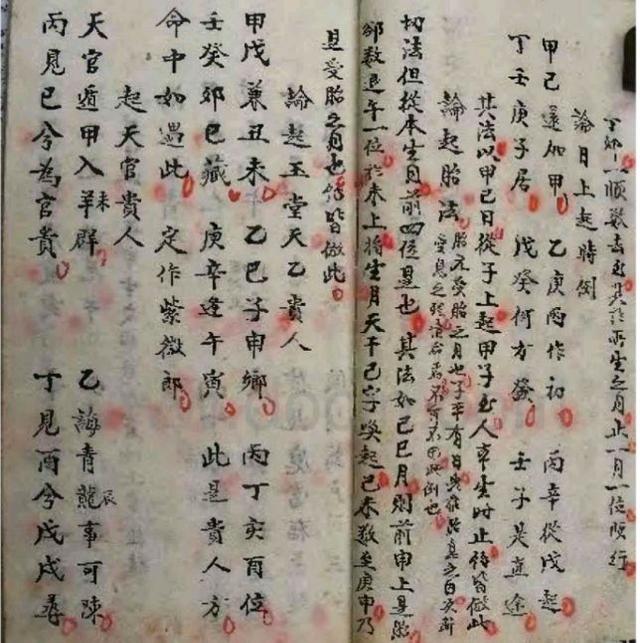 一順數去至其於所生之月止一月一位順行
論日上起時例
甲己還加甲 乙庚丙作初 丙辛從戊起
丁壬庚子居 戊癸何方發 壬子是直途
其法以甲己日從子上起甲子至人辛生時止餘皆倣此
論起胎法 胎元受胎之月也子平有曰 受息之 不可不用此例也
切法但從本生月前四位是也 其法如己巳月則前申上是胎
卻數退午一位於未上將生月天干己字喚起己未數至庚申乃
是受胎之月也餘皆倣此
論起玉堂天乙貴人
甲戊兼丑未 乙己子申鄉 丙丁亥酉位
壬癸卯巳藏 庚辛逢午寅 此是貴人方
命中如遇此 定作紫微郎
起天官貴人
天官遁甲入羊未群 乙誨青龍辰事可陳
丙見巳兮為官貴 丁見酉兮戊戌尋